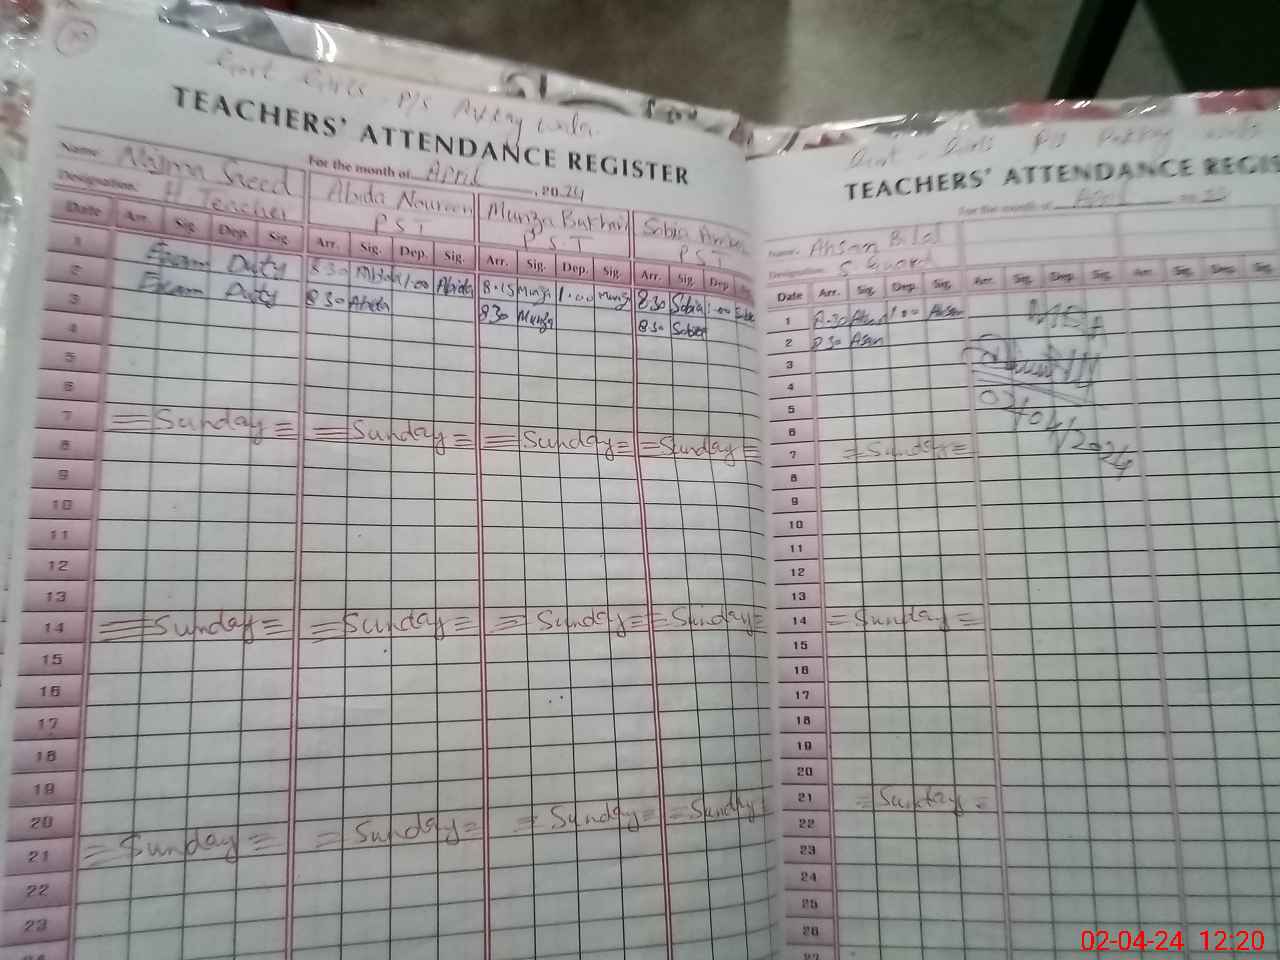 Govt Girls P/S
TEACHERS' ATTENDANCE REGISTER
For the month of April, 2024
Name Naima Saeed
Designation. H Teacher
Abida Noureen
P S T
Munza Bukhari
P. S. T
Sobia
P S T
Date Arr. Sig. Dep. Sig. Arr. Sig. Dep. Sig. Arr. Sig. Dep. Sig. Arr. Sig. Dep.
1 Exam Duty 8 30 Abida 1.00 Abida 8.15 Munza 1.00 Munza 8.30 Sobia 1.00
2 Exam Duty 8 30 Abida 830 Munza 8.30 Sobia
3
4
5
6
7 = Sunday = = Sunday = = Sunday = = Sunday =
8
9
10
11
12
13
14 = Sunday = = Sunday = = Sunday = = Sunday =
15
16
17
18
19
20
21 = Sunday = = Sunday = = Sunday = = Sunday =
22
23
Govt. Girls P/S
TEACHERS' ATTENDANCE REGIS
For the month of April
Name. Ahsan Bilal
Designation. S. Guard
Date Arr. Sig. Dep. Sig. Arr. Sig. Dep. Sig. Arr. Sig. Dep. Sig.
1 8.30 Ahsan 1.00 Ahsan
2 8 30 Asan
3
4
5
6
7 = Sunday =
8
9
10
11
12
13
14 = Sunday =
15
16
17
18
19
20
21 = Sunday =
22
23
24
25
26
27
MEA
02/04/2024
02-04-24 12:20